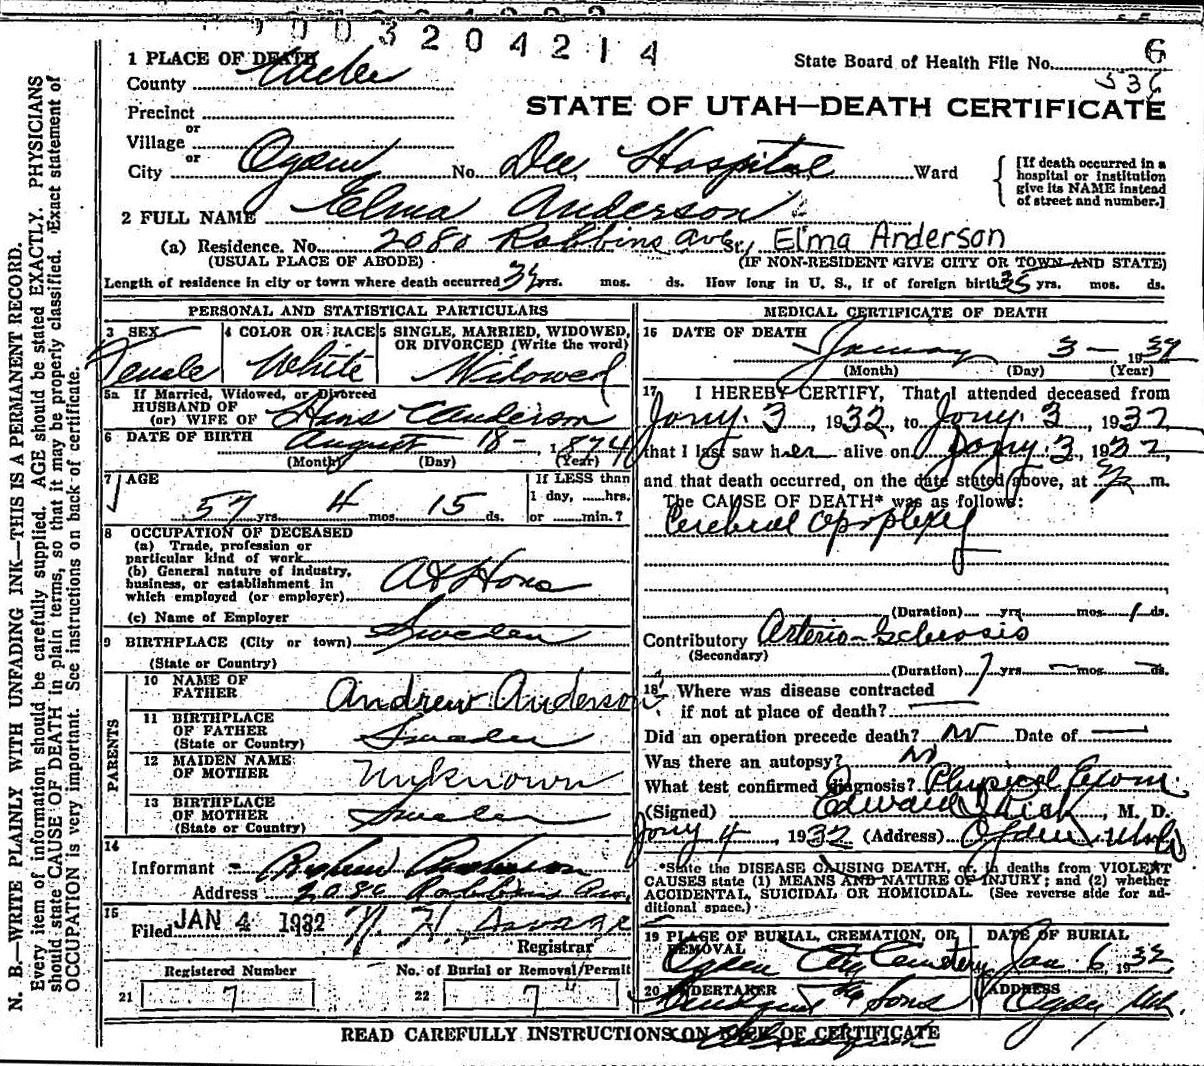 1003204214
1 PLACE OF DEATH
County Weber
State Board of Health File No. 6
536
STATE OF UTAH—DEATH CERTIFICATE
Precinct
or
Village
or
City Ogden No. Dee Hospital Ward
[If death occurred in a
hospital or institution
give its NAME instead
of street and number.]
2 FULL NAME Elma Anderson
(a) Residence. No. 2080 Robbins Ave St., Elma Anderson
(USUAL PLACE OF ABODE) (IF NON-RESIDENT GIVE CITY OR TOWN AND STATE)
Length of residence in city or town where death occurred 34 yrs. mos. ds. How long in U. S., if of foreign birth 35 yrs. mos. ds.
PERSONAL AND STATISTICAL PARTICULARS
3 SEX
Female
4 COLOR OR RACE
White
5 SINGLE, MARRIED, WIDOWED,
OR DIVORCED (Write the word)
Widowed
5a If Married, Widowed, or Divorced
HUSBAND OF
(or) WIFE OF Hans Anderson
6 DATE OF BIRTH August 18 — 1874
(Month) (Day) (Year)
7 AGE
57 yrs. 4 mos. 15 ds.
If LESS than
1 day, ......hrs.
or ......min.?
8 OCCUPATION OF DECEASED
(a) Trade, profession or
particular kind of work
(b) General nature of industry,
business, or establishment in
which employed (or employer) At Home
(c) Name of Employer
9 BIRTHPLACE (City or town) Sweden
(State or Country)
PARENTS
10 NAME OF
FATHER Andrew Anderson
11 BIRTHPLACE
OF FATHER
(State or Country) Sweden
12 MAIDEN NAME
OF MOTHER Unknown
13 BIRTHPLACE
OF MOTHER
(State or Country) Sweden
14
Informant - Anderson
Address 2080 Robbins Ave.
15
Filed JAN 4 1932
Registrar
Registered Number
21 7
No. of Burial or Removal Permit
22 7
MEDICAL CERTIFICATE OF DEATH
16 DATE OF DEATH
January 3 — 1932
(Month) (Day) (Year)
17 I HEREBY CERTIFY, That I attended deceased from
Jany. 3, 1932, to Jany 3, 1932
that I last saw her alive on Jany 3, 1932,
and that death occurred, on the date stated above, at m.
The CAUSE OF DEATH* was as follows:
Cerebral Apoplexy
(Duration) yrs. mos. 1 ds.
Contributory Arterio-Sclerosis
(Secondary)
(Duration) yrs — mos. — ds.
18 Where was disease contracted
if not at place of death? —
Did an operation precede death? no Date of —
Was there an autopsy? no
What test confirmed diagnosis? Physical Exam.
(Signed) Edward , M. D.
Jany 4, 1932 (Address) Ogden, Utah
*State the DISEASE CAUSING DEATH, or, in deaths from VIOLENT
CAUSES state (1) MEANS AND NATURE OF INJURY; and (2) whether
ACCIDENTAL, SUICIDAL OR HOMICIDAL. (See reverse side for ad-
ditional space.)
19 PLACE OF BURIAL, CREMATION, OR
REMOVAL
Ogden City Cemetery
DATE OF BURIAL
Jan. 6 1932
20 UNDERTAKER
& Sons
ADDRESS
Ogden Utah.
READ CAREFULLY INSTRUCTIONS ON BACK OF CERTIFICATE
N. B.—WRITE PLAINLY WITH UNFADING INK—THIS IS A PERMANENT RECORD.
Every item of information should be carefully supplied. AGE should be stated EXACTLY. PHYSICIANS
should state CAUSE OF DEATH in plain terms, so that it may be properly classified. Exact statement of
OCCUPATION is very important. See instructions on back of certificate.